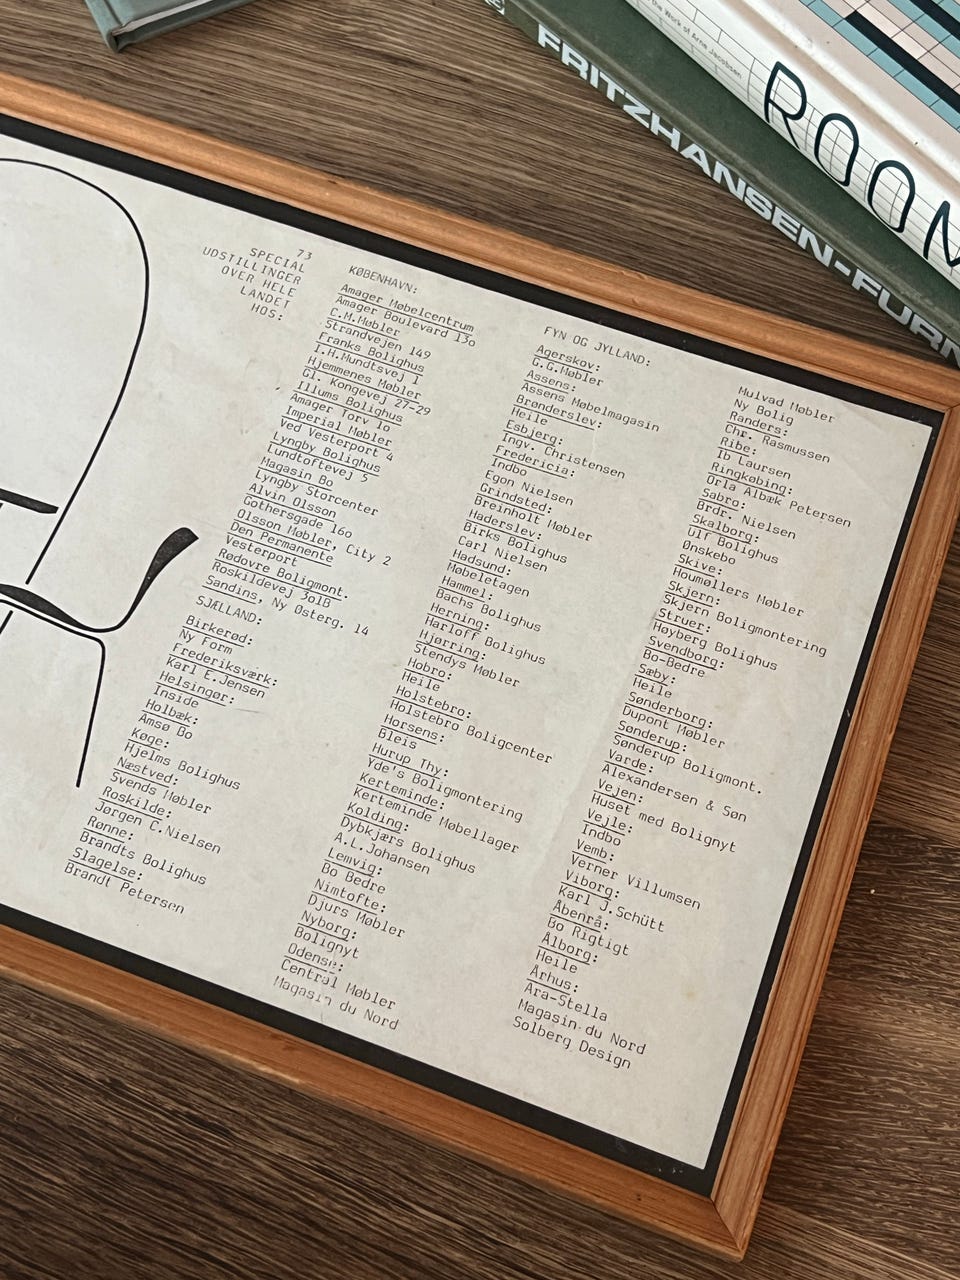 73
SPECIAL
UDSTILLINGER
OVER HELE
LANDET
HOS:
KØBENHAVN:
Amager Møbelcentrum
Amager Boulevard 13o
C.M.Møbler
Strandvejen 149
Franks Bolighus
T.H.Mundtsvej 1
Hjemmenes Møbler
Gl. Kongevej 27-29
Illums Bolighus
Amager Torv 1o
Imperial Møbler
Ved Vesterport 4
Lyngby Bolighus
Lundtoftevej 5
Magasin Bo
Lyngby Storcenter
Alvin Olsson
Gothersgade 16o
Olsson Møbler, City 2
Den Permanente
Vesterport
Rødovre Boligmont.
Roskildevej 3o1B
Sandins, Ny Østerg. 14
SJÆLLAND:
Birkerød:
Ny Form
Frederiksværk:
Karl E.Jensen
Helsingør:
Inside
Holbæk:
Amsø Bo
Køge:
Hjelms Bolighus
Næstved:
Svends Møbler
Roskilde:
Jørgen C.Nielsen
Rønne:
Brandts Bolighus
Slagelse:
Brandt Petersen
FYN OG JYLLAND:
Agerskov:
G.G.Møbler
Assens:
Assens Møbelmagasin
Brønderslev:
Heile
Esbjerg:
Ingv. Christensen
Fredericia:
Indbo
Egon Nielsen
Grindsted:
Breinholt Møbler
Haderslev:
Birks Bolighus
Carl Nielsen
Hadsund:
Møbeletagen
Hammel:
Bachs Bolighus
Herning:
Harloff Bolighus
Hjørring:
Stendys Møbler
Hobro:
Heile
Holstebro:
Holstebro Boligcenter
Horsens:
Bleis
Hurup Thy:
Yde's Boligmontering
Kerteminde:
Kerteminde Møbellager
Kolding:
Dybkjærs Bolighus
A.L.Johansen
Lemvig:
Bo Bedre
Nimtofte:
Djurs Møbler
Nyborg:
Bolignyt
Odense:
Central Møbler
Magasin du Nord
Mulvad Møbler
Ny Bolig
Randers:
Chr. Rasmussen
Ribe:
Ib Laursen
Ringkøbing:
Orla Albæk Petersen
Sabro:
Brdr. Nielsen
Skalborg:
Ulf Bolighus
Ønskebo
Skive:
Houmøllers Møbler
Skjern:
Skjern Boligmontering
Struer:
Høyberg Bolighus
Svendborg:
Bo-Bedre
Sæby:
Heile
Sønderborg:
Dupont Møbler
Sønderup:
Sønderup Boligmont.
Varde:
Alexandersen & Søn
Vejen:
Huset med Bolignyt
Vejle:
Indbo
Vemb:
Verner Villumsen
Viborg:
Karl J.Schütt
Åbenrå:
Bo Rigtigt
Ålborg:
Heile
Århus:
Ara-Stella
Magasin du Nord
Solberg Design
FRITZHANSEN-FURN
the Work of Arne Jacobsen
ROOM